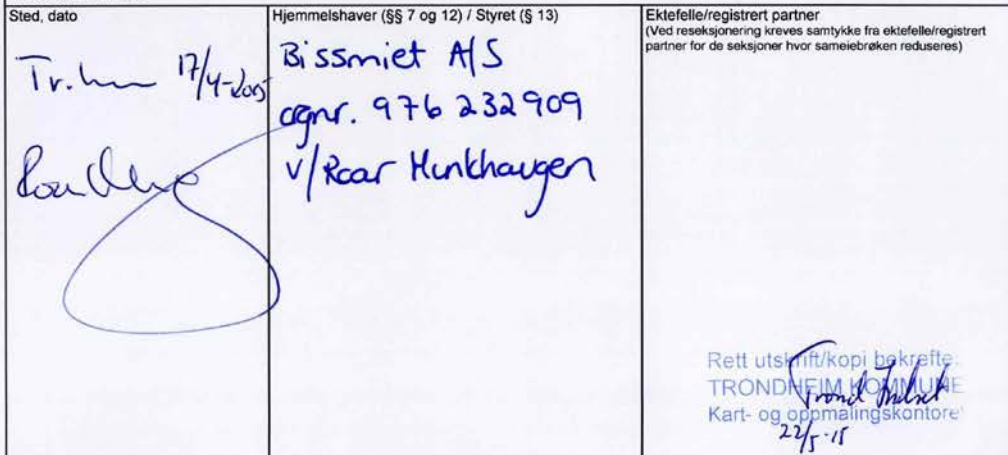 Sted, dato
Tr.hm 17/4-2015
Hjemmelshaver (§§ 7 og 12) / Styret (§ 13)
Bissmiet A/S
orgnr. 976 232 909
v/Roar Munkhaugen
Ektefelle/registrert partner
(Ved reseksjonering kreves samtykke fra ektefelle/registrert
partner for de seksjoner hvor sameiebrøken reduseres)
Rett utskrift/kopi bekreftes
TRONDHEIM KOMMUNE
Kart- og oppmålingskontoret
22/5-15